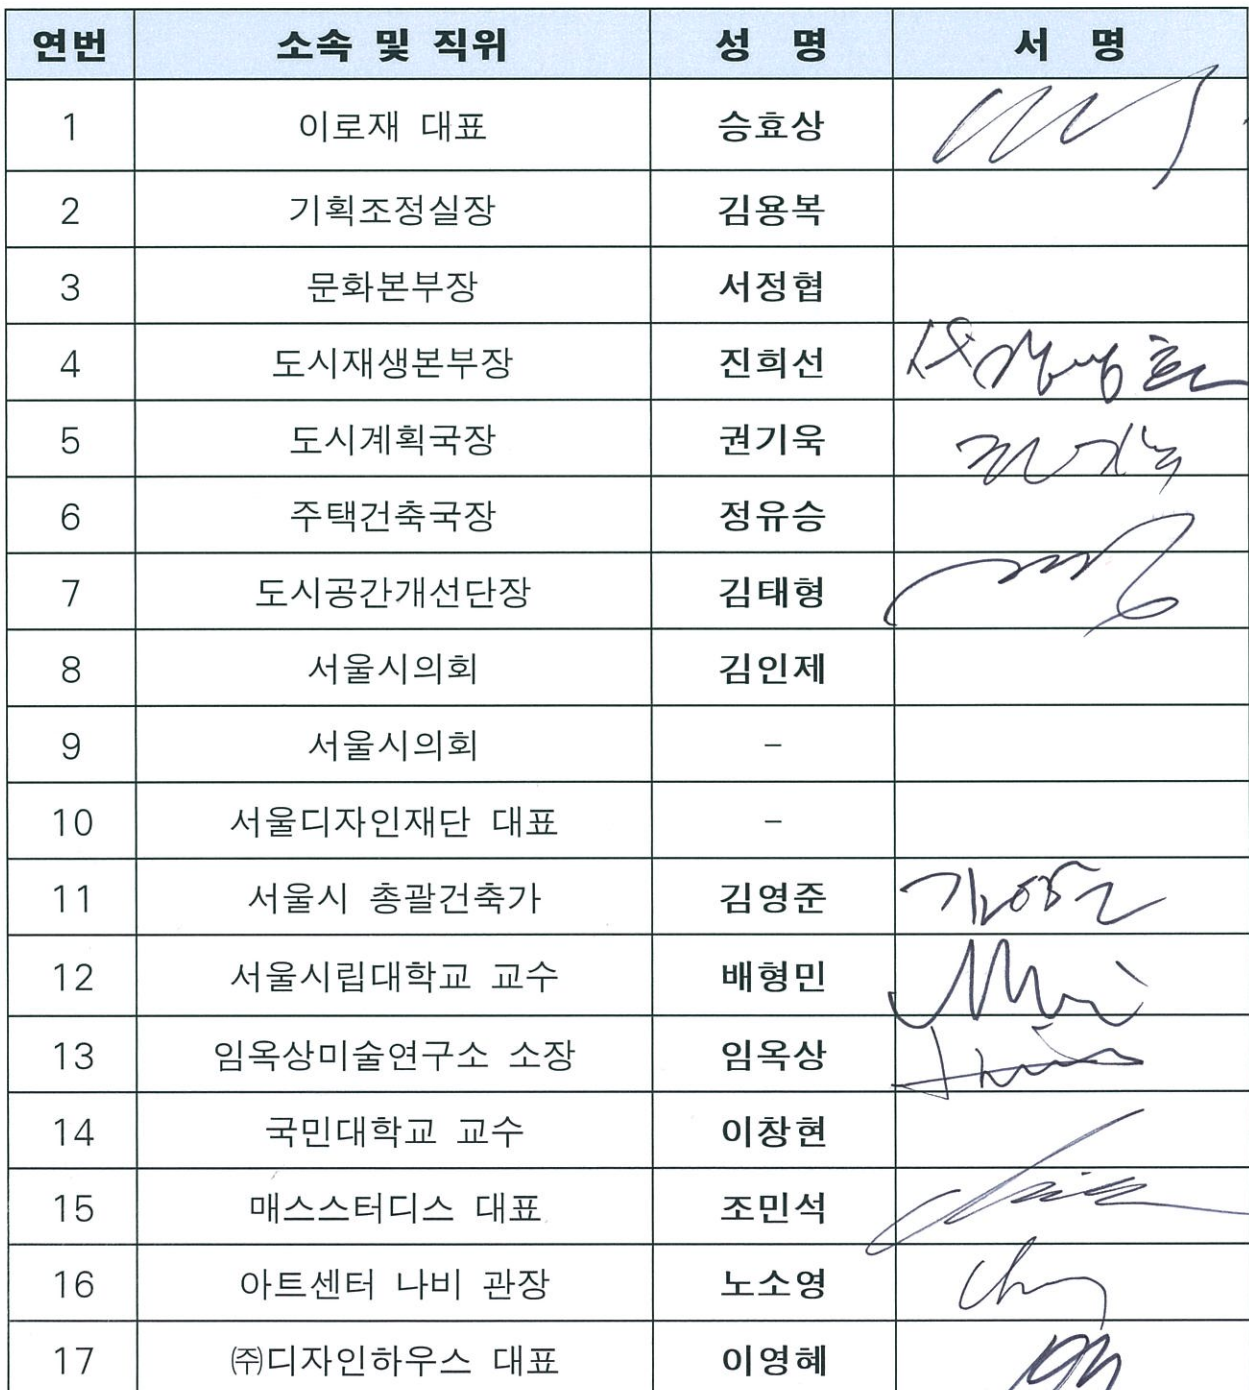 연번 소속 및 직위 성 명 서 명
1 이로재 대표 승효상
2 기획조정실장 김용복
3 문화본부장 서정협
4 도시재생본부장 진희선
5 도시계획국장 권기욱
6 주택건축국장 정유승
7 도시공간개선단장 김태형
8 서울시의회 김인제
9 서울시의회 –
10 서울디자인재단 대표 –
11 서울시 총괄건축가 김영준
12 서울시립대학교 교수 배형민
13 임옥상미술연구소 소장 임옥상
14 국민대학교 교수 이창현
15 매스스터디스 대표 조민석
16 아트센터 나비 관장 노소영
17 ㈜디자인하우스 대표 이영혜